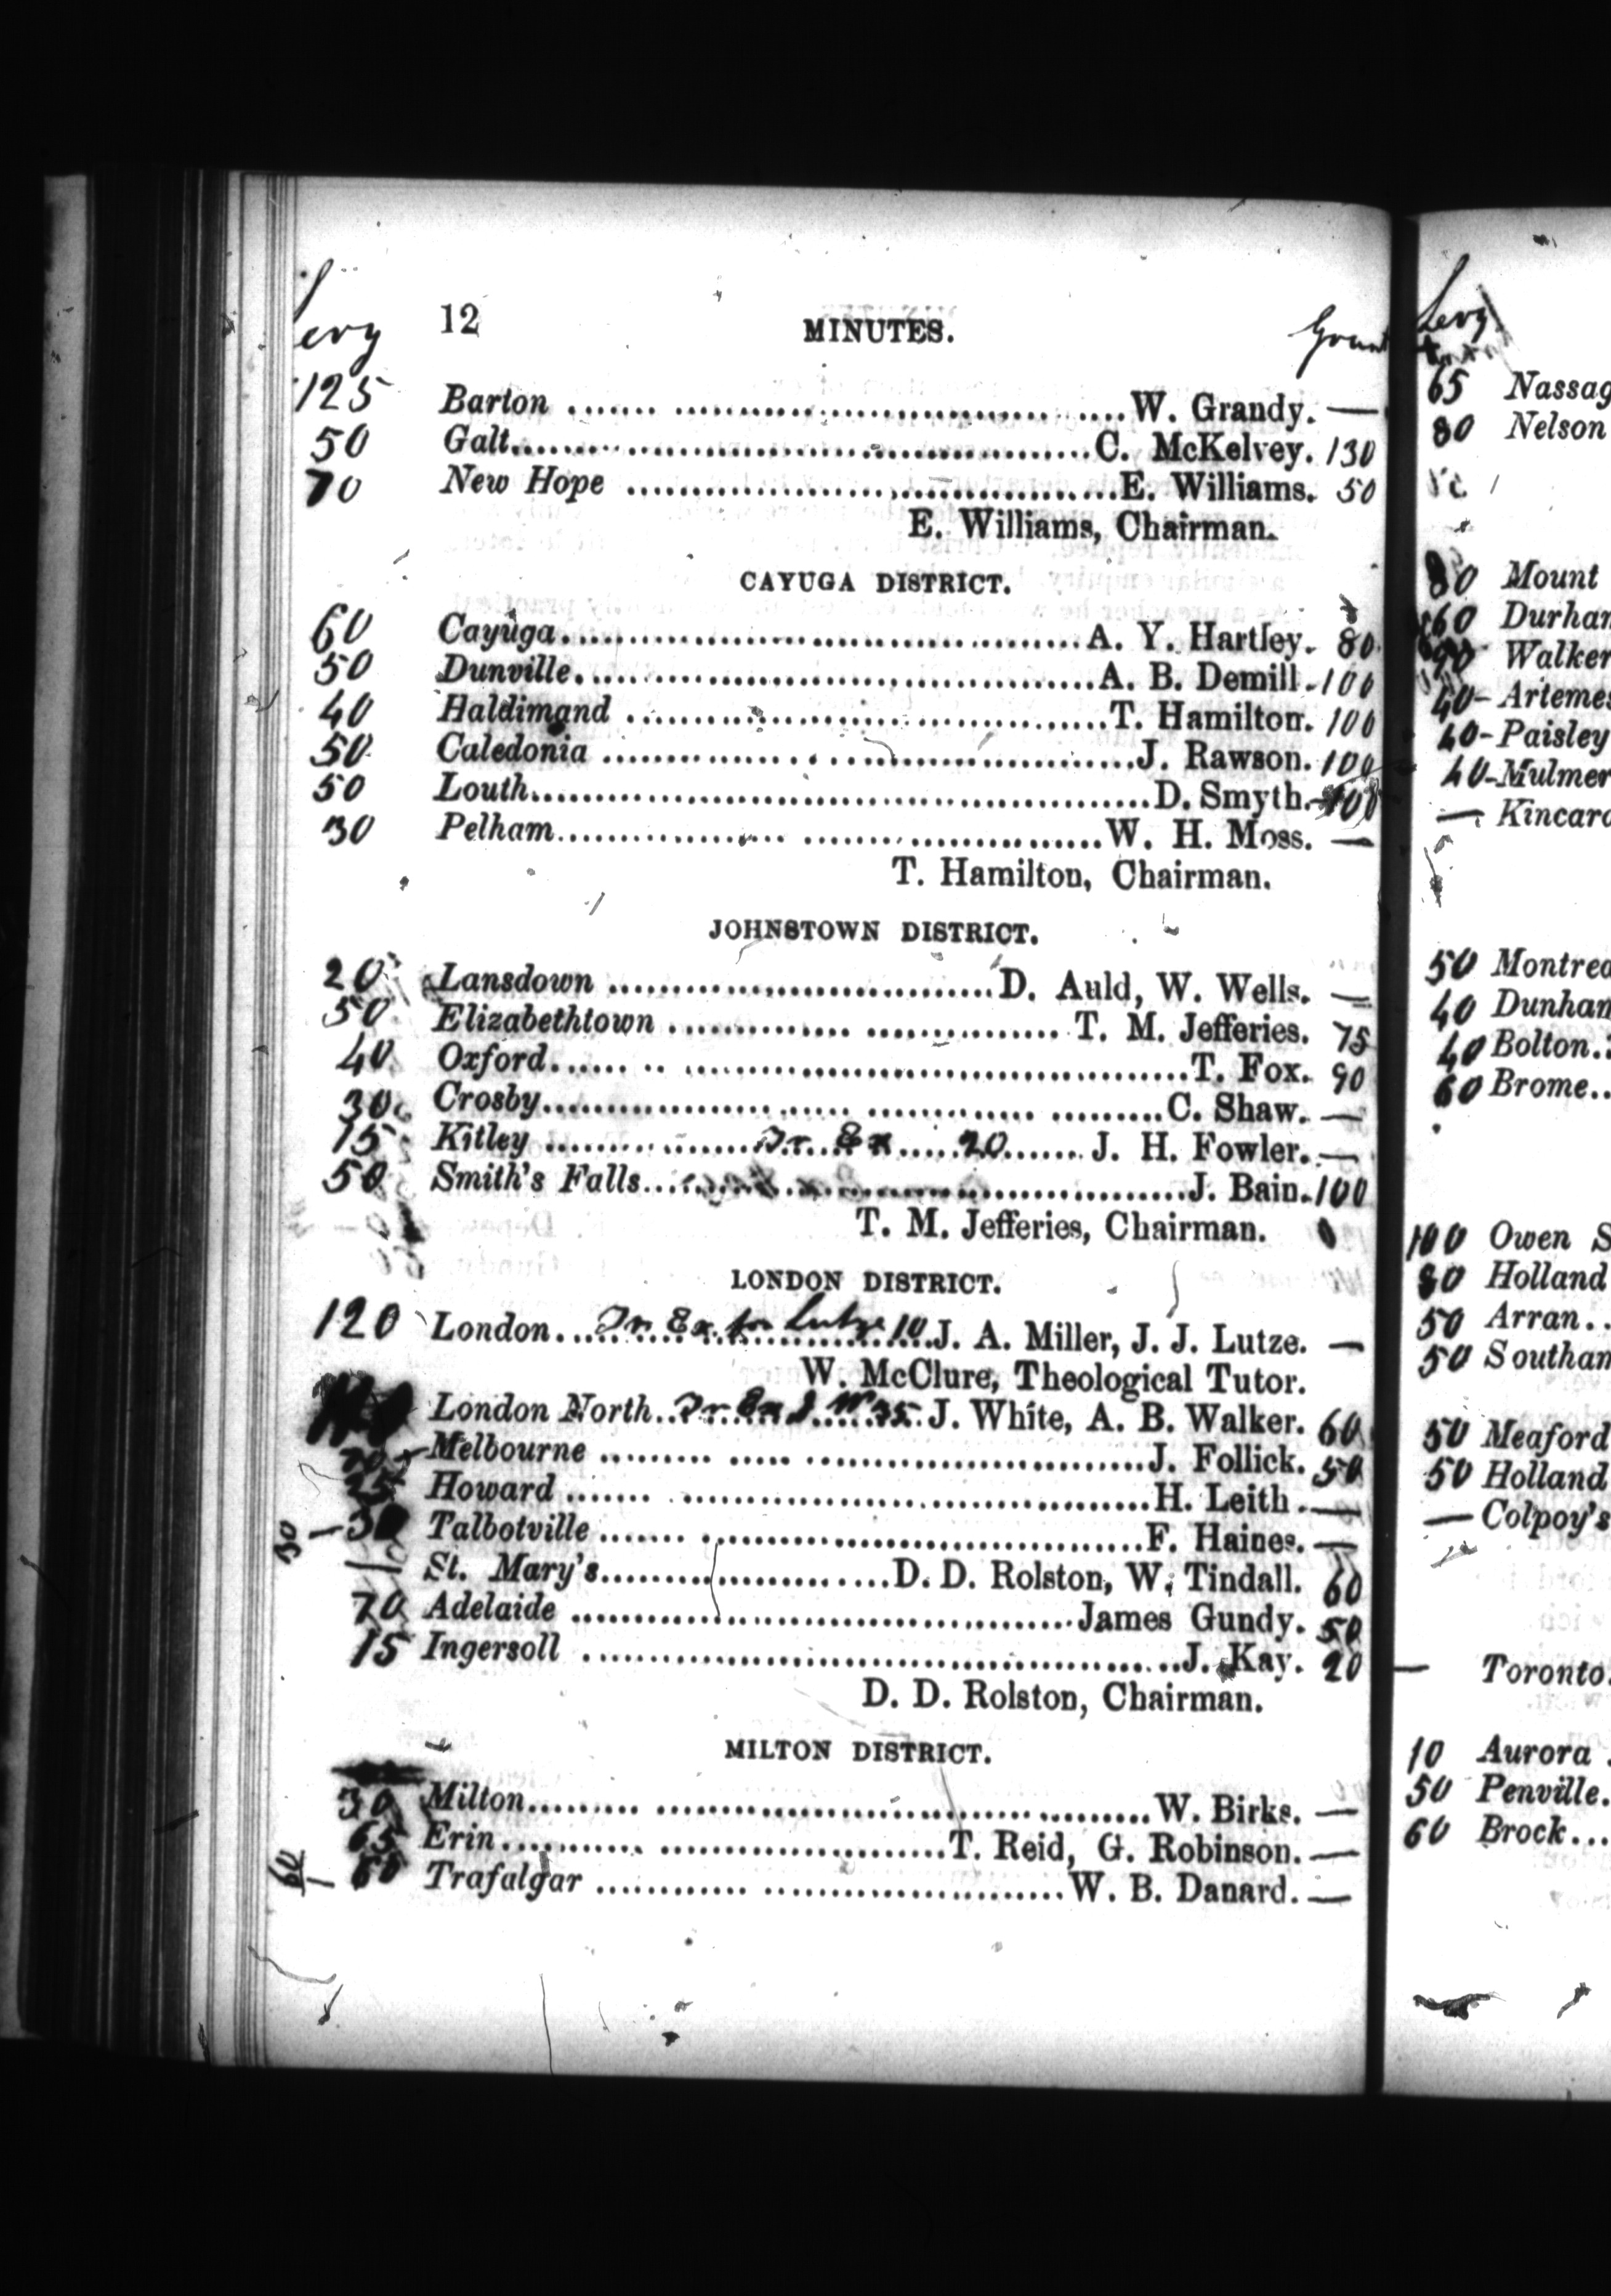 12 MINUTES. Grant
125 Barton ....... W. Grandy. —
50 Galt....... C. McKelvey. 130
70 New Hope ....... E. Williams. 50
E. Williams, Chairman.
CAYUGA DISTRICT.
60 Cayuga....... A. Y. Hartley. 80
50 Dunville....... A. B. Demill. 100
40 Haldimand ....... T. Hamilton. 100
50 Caledonia ....... J. Rawson. 100
50 Louth....... D. Smyth. 100
30 Pelham....... W. H. Moss. —
T. Hamilton, Chairman.
JOHNSTOWN DISTRICT.
20 Lansdown ....... D. Auld, W. Wells. —
50 Elizabethtown ....... T. M. Jefferies. 75
40 Oxford....... T. Fox. 90
30 Crosby....... C. Shaw. —
15 Kitley ....... Tr. Ex 20 ....... J. H. Fowler. —
50 Smith's Falls....... J. Bain. 100
T. M. Jefferies, Chairman.
LONDON DISTRICT.
120 London.... Tr Ex for Lutze 10 J. A. Miller, J. J. Lutze. —
W. McClure, Theological Tutor.
London North.. Tr Ex J W 35 J. White, A. B. Walker. 60
Melbourne ....... J. Follick. 50
25 Howard ....... H. Leith. —
30 — 30 Talbotville ....... F. Haines. —
— St. Mary's....... D. D. Rolston, W. Tindall. 60
70 Adelaide ....... James Gundy. 50
15 Ingersoll ....... J. Kay. 20
D. D. Rolston, Chairman.
MILTON DISTRICT.
30 Milton....... W. Birks. —
65 Erin....... T. Reid, G. Robinson. —
60 — 60 Trafalgar ....... W. B. Danard. —
Levy
65 Nassag
80 Nelson
80 Mount
60 Durham
Walker
40 - Artemes
40 - Paisley
40 - Mulmer
— Kincard
50 Montrea
40 Dunham
40 Bolton..
60 Brome..
100 Owen S
80 Holland
50 Arran..
50 Southam
50 Meaford
50 Holland
— Colpoy's
— Toronto.
10 Aurora .
50 Penville.
60 Brock...